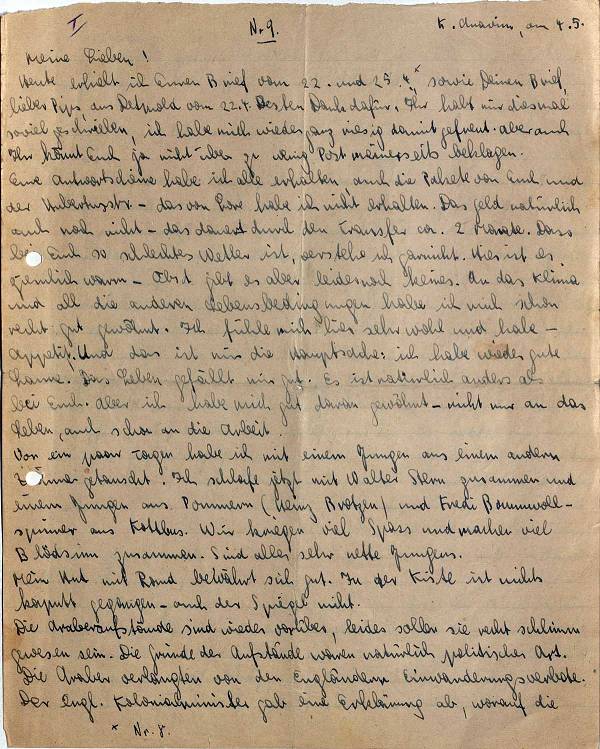 I
Nr 9.
K. Anavim, am 4.5.
Meine Lieben!
Heute erhielt ich Euren Brief vom 22. und 25.4.*, sowie Deinen Brief,
lieber Pips aus Detmold vom 22.4. Besten Dank dafür, Ihr habt mir diesmal
soviel geschrieben, ich habe mich wieder ganz riesig damit gefreut. aber auch
Ihr könnt Euch ja nicht über zu wenig Post meinerseits beklagen.
Eure Antwortscheine habe ich alle erhalten, auch die Pakete von Euch und
der Hubertusstr. – das von Lore habe ich nicht erhalten. Das Geld natürlich
auch noch nicht – das dauert durch den Transfer ca. 2 Monate. Dass
bei Euch so schlechtes Wetter ist, verstehe ich garnicht. Hier ist es
ziemlich warm – Obst gibt es aber leider noch keines. An das Klima
und all die anderen Lebensbedingungen habe ich mich schon
recht gut gewöhnt. Ich fühle mich hier sehr wohl und habe –
Appetit. Und das ist mir die Hauptsache: ich habe wieder gute
Laune. Das Leben gefällt mir gut. Es ist natürlich anders als
bei Euch. Aber ich habe mich gut daran gewöhnt – nicht nur an das
Leben, auch schon an die Arbeit.
Vor ein paar Tagen habe ich mit einem Jungen aus einem andern
Zimmer getauscht. Ich schlafe jetzt mit Walter Stern zusammen und
einem Jungen aus Pommern (Heinz Brotzen) und Fredi Baumwoll-
spinner aus Kottbus. Wir kriegen viel Spass und machen viel
Blödsinn zusammen. Sind alles sehr nette Jungens.
Mein Hut mit Rand bewährt sich gut. In der Kiste ist nichts
kaputt gegangen – auch der Spiegel nicht.
Die Araberaufstände sind wieder vorüber, leider sollen sie recht schlimm
gewesen sein. Die Gründe der Aufstände waren natürlich politischer Art.
Die Araber verlangten von den Engländern Einwanderungsverbote.
Der Engl. Kolonialminister gab eine Erklärung ab, worauf die
* Nr. 8.